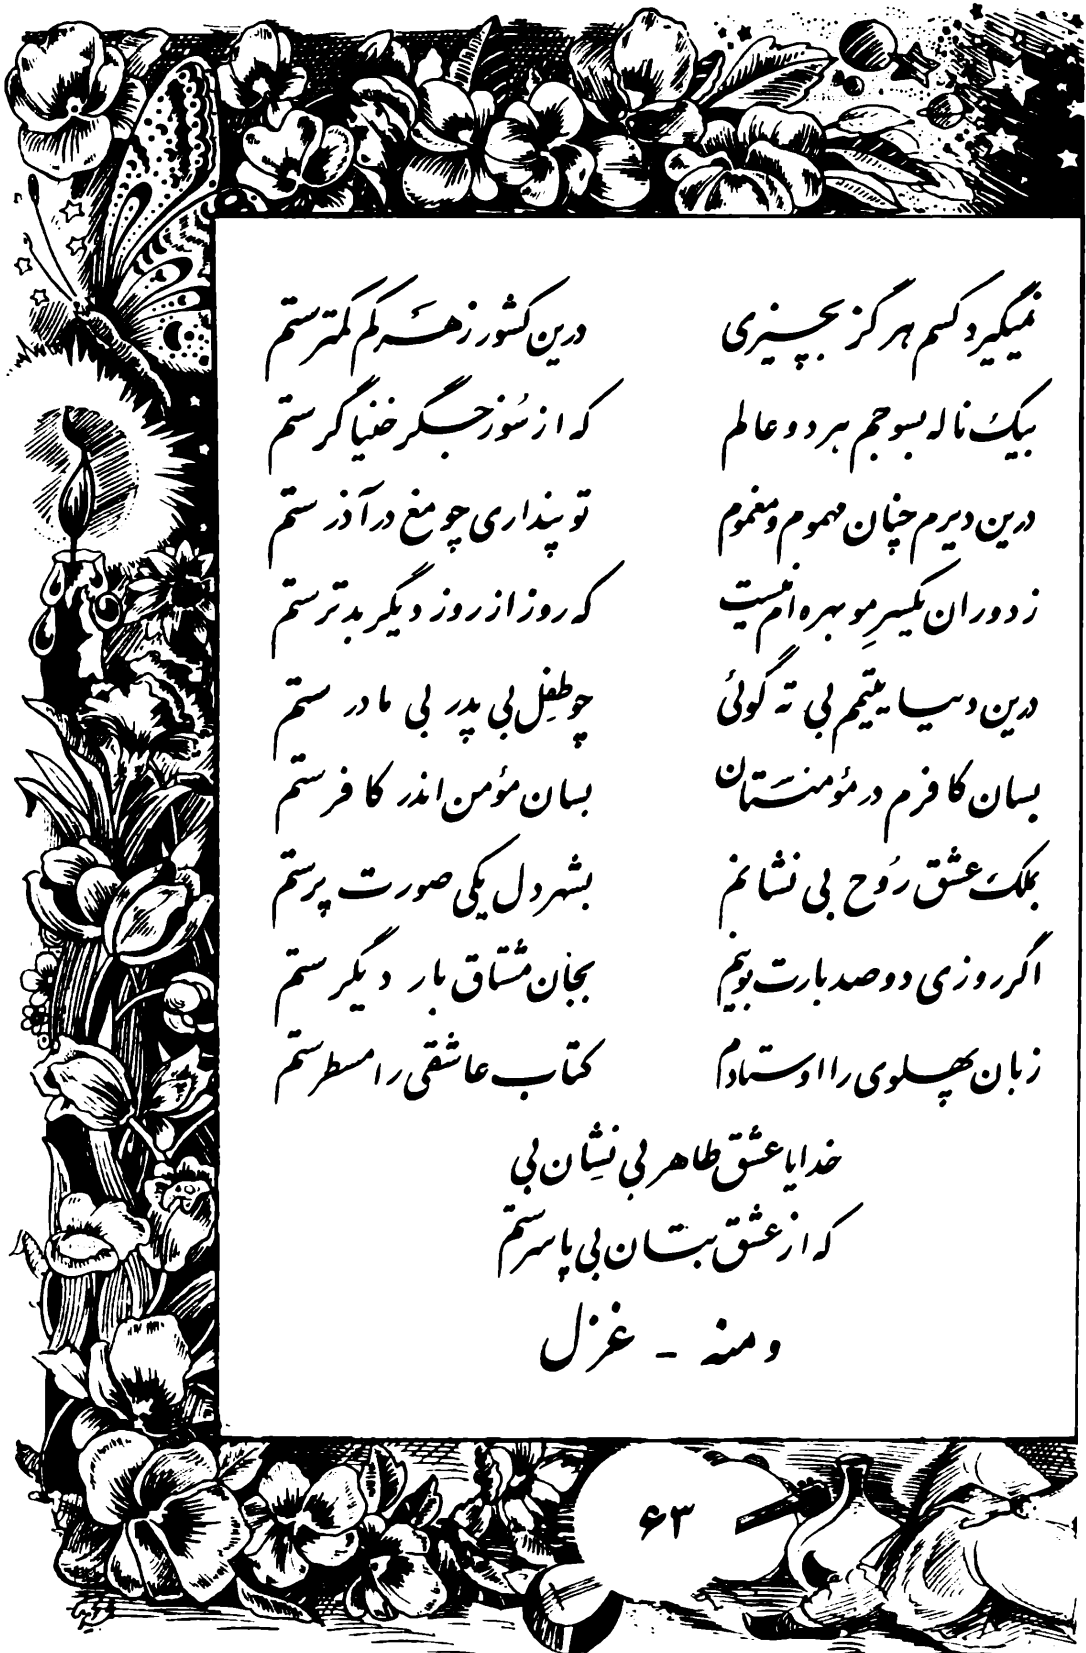 نمیگیرد کسم هرگز بچیزی درین کشور ز هر کم کمترستم
بیک ناله بسوجم هر دو عالم که از سُوز جگر خنیاگرستم
درین دیرم چنان مهموم و مغموم تو پنداری چو مغ در آذرستم
ز دوران یکسرِ مو بهره‌ام نیست که روز از روز دیگر بدترستم
درین دنیا یتیمم بی ته گوئی چو طفل بی پدر بی مادرستم
بسان کافرم در مؤمنستان بسان مؤمن اندر کافرستم
بملک عشق رُوح بی نشانم بشهر دل یکی صورت پرستم
اگر روزی دو صد بارت بوینم بجان مشتاق بار دیگرستم
زبان پهلوی را اوستادم کتاب عاشقی را مسطرستم
خدایا عشق طاهر بی نشان بی
که از عشق بتان بی پا سرستم
و منه - غزل
۶۳